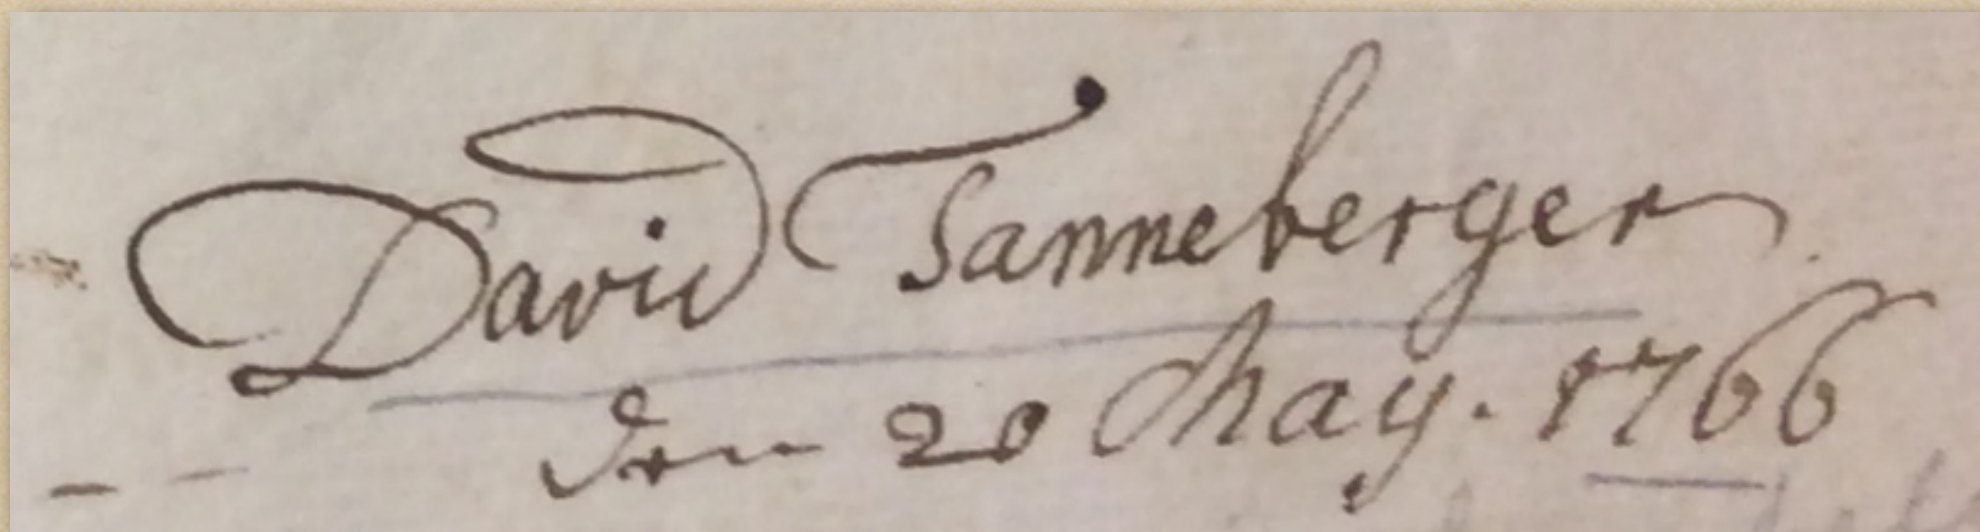 David Tanneberger
den 20 May. 1766